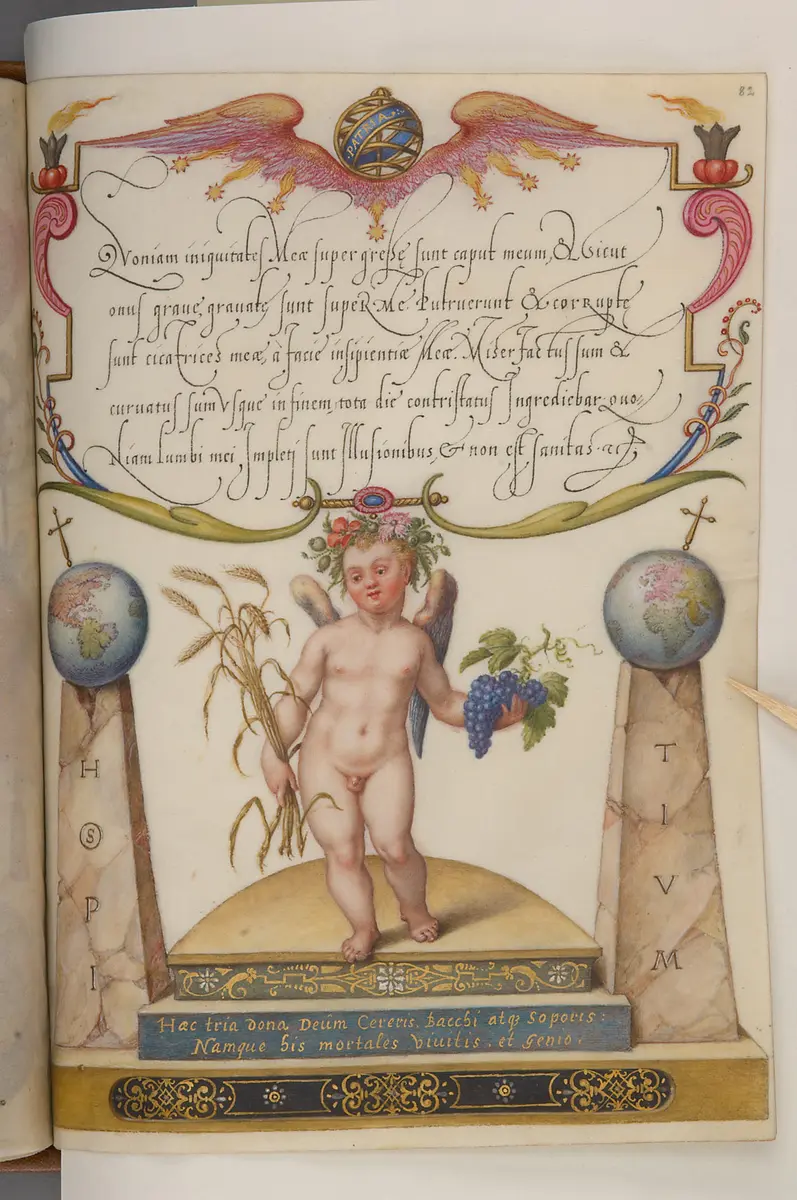 82
PATRIA
Quoniam iniquitates Meæ supergressę sunt caput meum, & Sicut
onus graue, grauatę sunt supeR Me. Putruerunt & coRRuptę
sunt cicatrices meæ, à facie insipientiæ Meæ. Miser factus sum &
curuatus sum Vsque in finem, tota die contristatus Ingrediebar, quo⸗
Niam Lumbi mei Impleti sunt Illusionibus, & non est sanitas.
H
S
P
I
T
I
V
M
Hæc tria dona Deûm Cereris, Bacchi atq; Soporis:
Namque his mortales viuitis, et Genio.